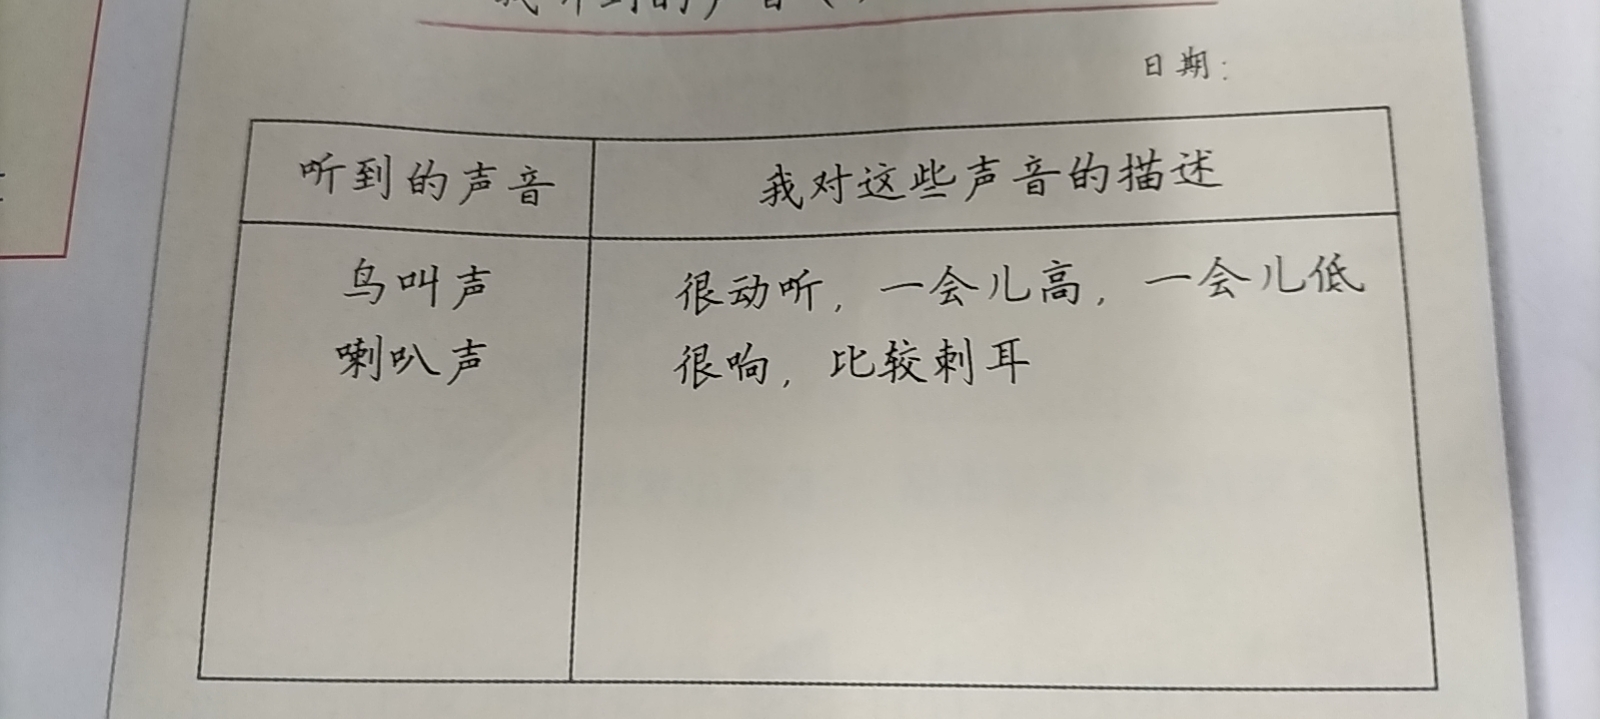 我听到的声音（
日期：
听到的声音
我对这些声音的描述
鸟叫声
很动听，一会儿高，一会儿低
喇叭声
很响，比较刺耳